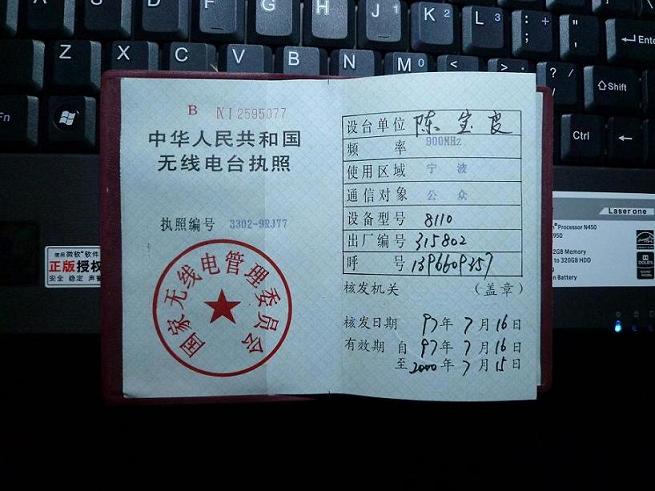 Enter
A
S
D
F
G
H
J 1
K 2
L 3
: ;
" '
Z
X
C
V
B
N
M 0
< ,
> .
? /
⇧Shift
Fn
Ctrl
←
B NI2595077
中华人民共和国
无线电台执照
执照编号 3302-9RJ77
国家无线电管理委员会
设台单位 陈宝良
频率 900MHz
使用区域 宁波
通信对象 公众
设备型号 8110
出厂编号 315802
呼号
核发机关 (盖章)
核发日期 97年7月16日
有效期 自 97年7月16日
至2000年7月15日
使用微软®软件
正版授权
安全 稳定 声誉
Laser one
Processor N450
950
2GB Memory
to 320GB HDD
on Battery